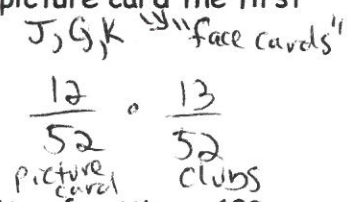 picture card the first
J, Q, K "face cards"
12/52 · 13/52
picture card clubs